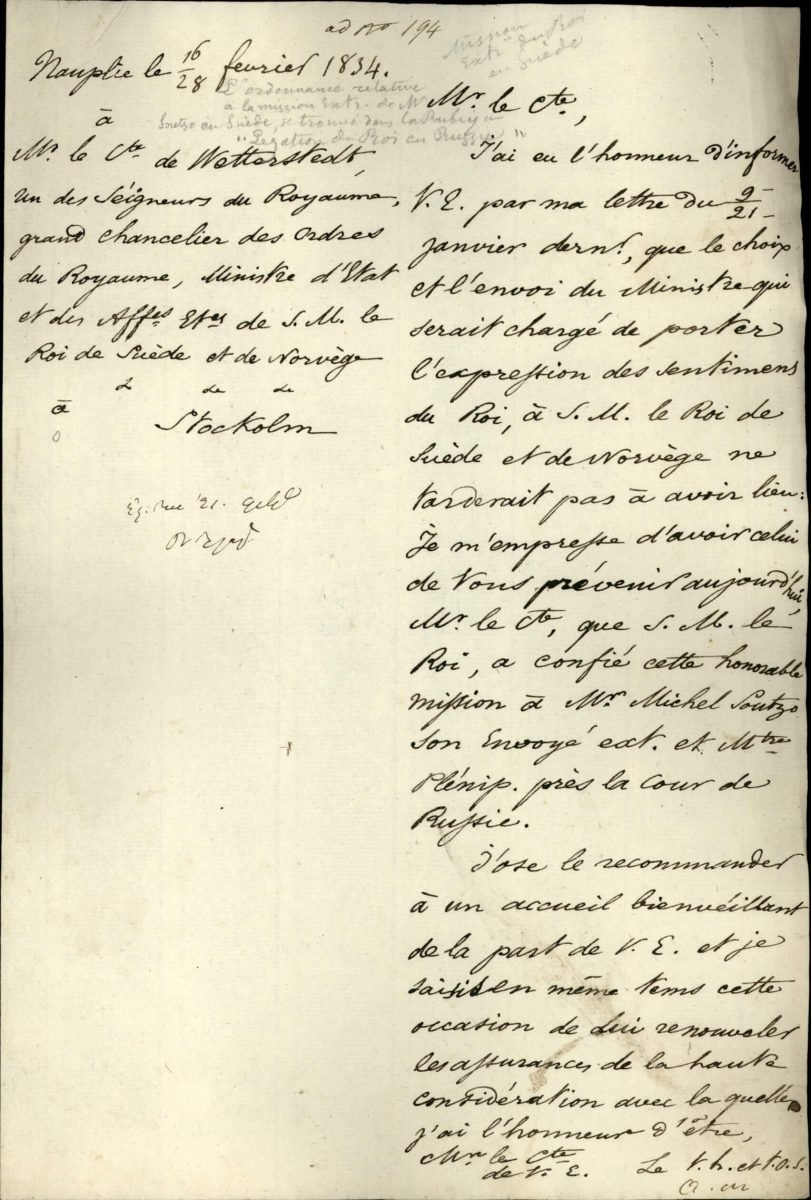 ad No 194
Mission
Extre du Roi
en Suède
Nauplie le 16/28 fevrier 1834.
L'ordonnance relative
à la mission Extr. de Mr
Soutzo en Suède, se trouve dans la Rubrique
"Legation du Roi en Russie"
à
Mr. le Cte de Wetterstedt,
un des Séigneurs du Royaume,
grand chancelier des ordres
du Royaume, Ministre d'Etat
et des Affes Etes de S. M. le
Roi de Suède et de Norvège
à
Stockolm
Mr. le Cte,
J'ai eu l'honneur d'informer
V. E. par ma lettre du 9/21
janvier dernr., que le choix
et l'envoi du Ministre qui
serait chargé de porter
l'expression des sentimens
du Roi, à S. M. le Roi de
Suède et de Norvège ne
tarderait pas à avoir lieu:
Je m'empresse d'avoir celui
de Vous prévenir aujourd'hui,
Mr. le Cte, que S. M. le
Roi, a confié cette honorable
mission à Mr. Michel Soutzo
son Envoyé ext. et Mtre
Plénip. près la Cour de
Russie.
J'ose le recommander
à un accueil bienvéillant
de la part de V. E. et je
saisis en même tems cette
occasion de Lui renouveler
les assurances de la haute
considération avec la quelle
j'ai l'honneur d'être,
Mr. le Cte
de V. E. Le t. h. et t. o. S.